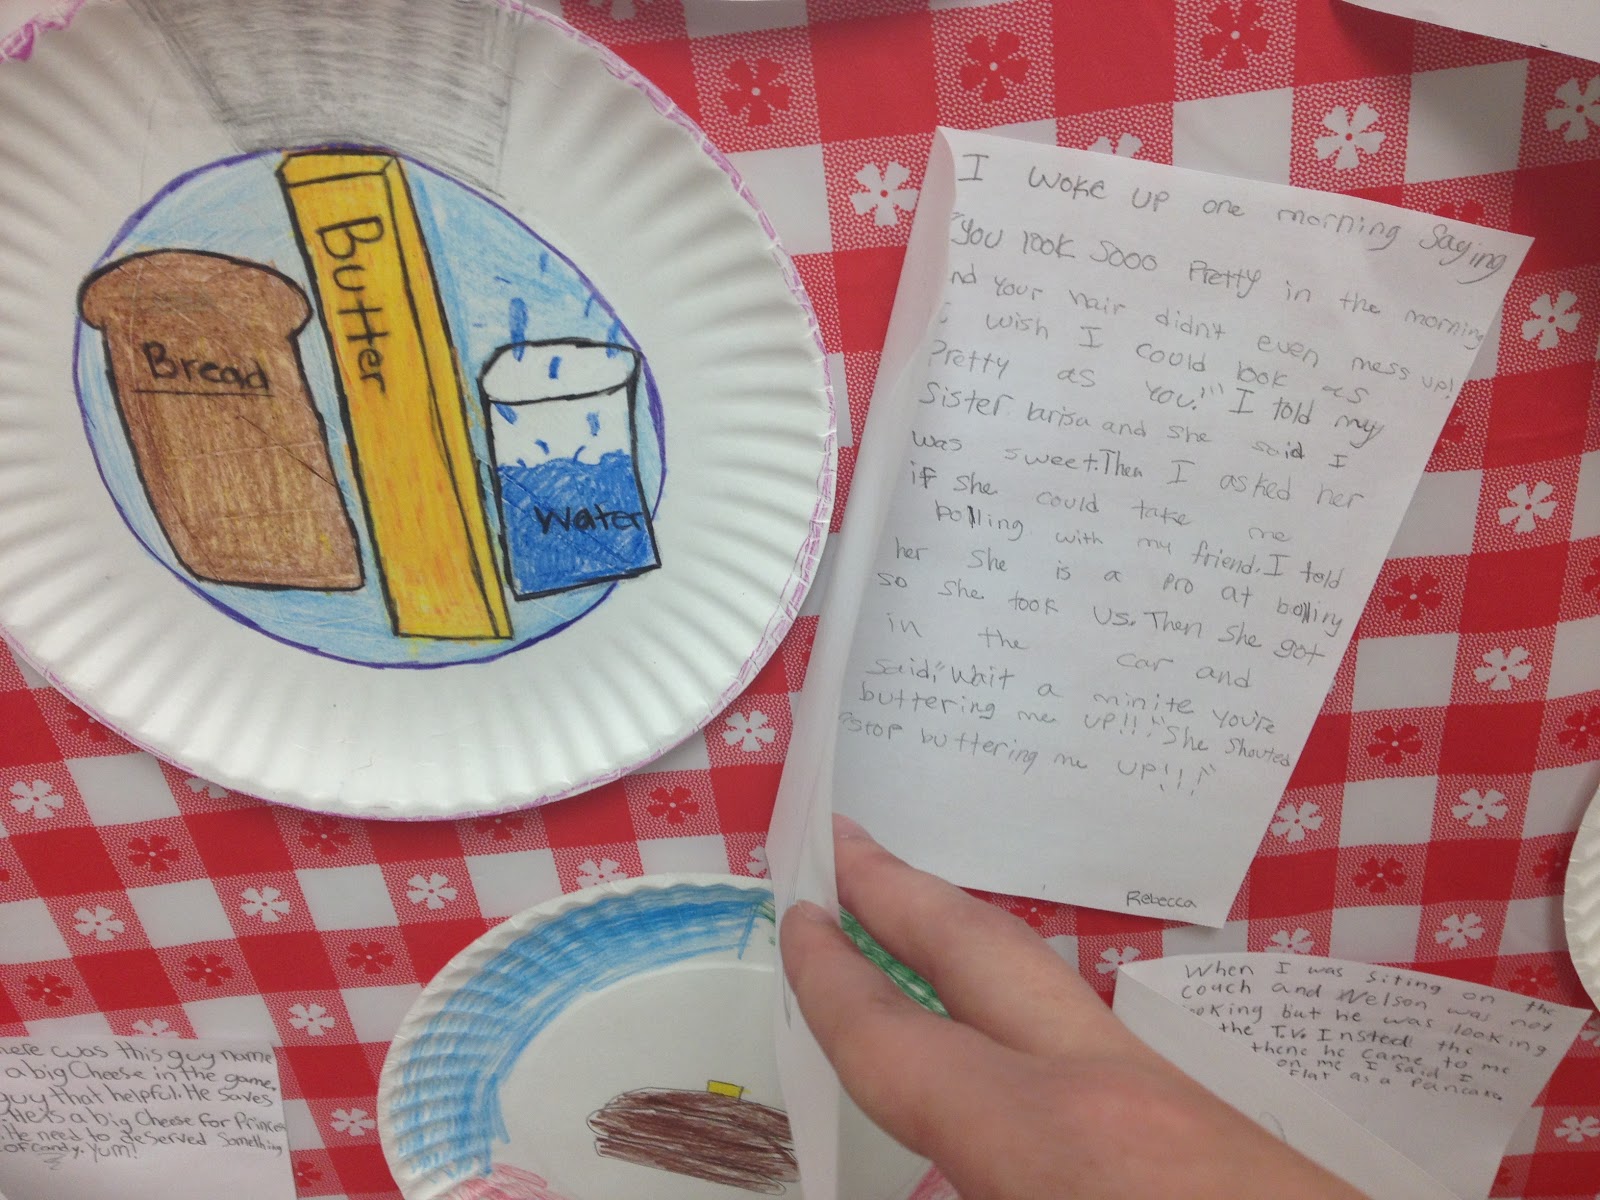 Bread
Butter
Water
I woke up one morning saying
"You look sooo Pretty in the morning
nd your hair didn't even mess up!
I wish I could look as
Pretty as you!" I told my
Sister larisa and she said I
was sweet. Then I asked her
if she could take me
bolling with my friend. I told
her she is a pro at bolling
so she took us. Then she got
in the car and
said, "Wait a minite you're
buttering me up!!" She shouted
"stop buttering me up!!!"
Rebecca
When I was siting on the
couch and Nelson was not
ooking but he was looking
the T.V. Insted the
thene he came to me
on me I said I
Flat as a pancake.
here was this guy name
a big Cheese in the game.
guy that helpful. He saves
He's a big Cheese for Princes
He need to deserved something
of candy. Yum!